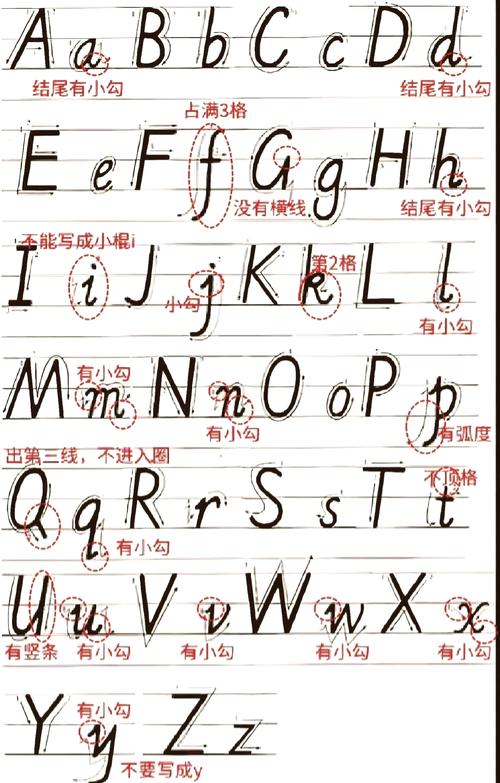 A a B b C c D d
结尾有小勾 结尾有小勾
占满3格
E e F f G g H h
没有横线 结尾有小勾
不能写成小棍i
第2格
I i J j K k L l
小勾
有小勾
有小勾
M m N n O o P p
有小勾 有弧度
出第三线，不进入圈
不顶格
Q q R r S s T t
有小勾
U u V v W w X x
有竖条 有小勾 有小勾 有小勾 有小勾
有小勾
Y y Z z
不要写成y